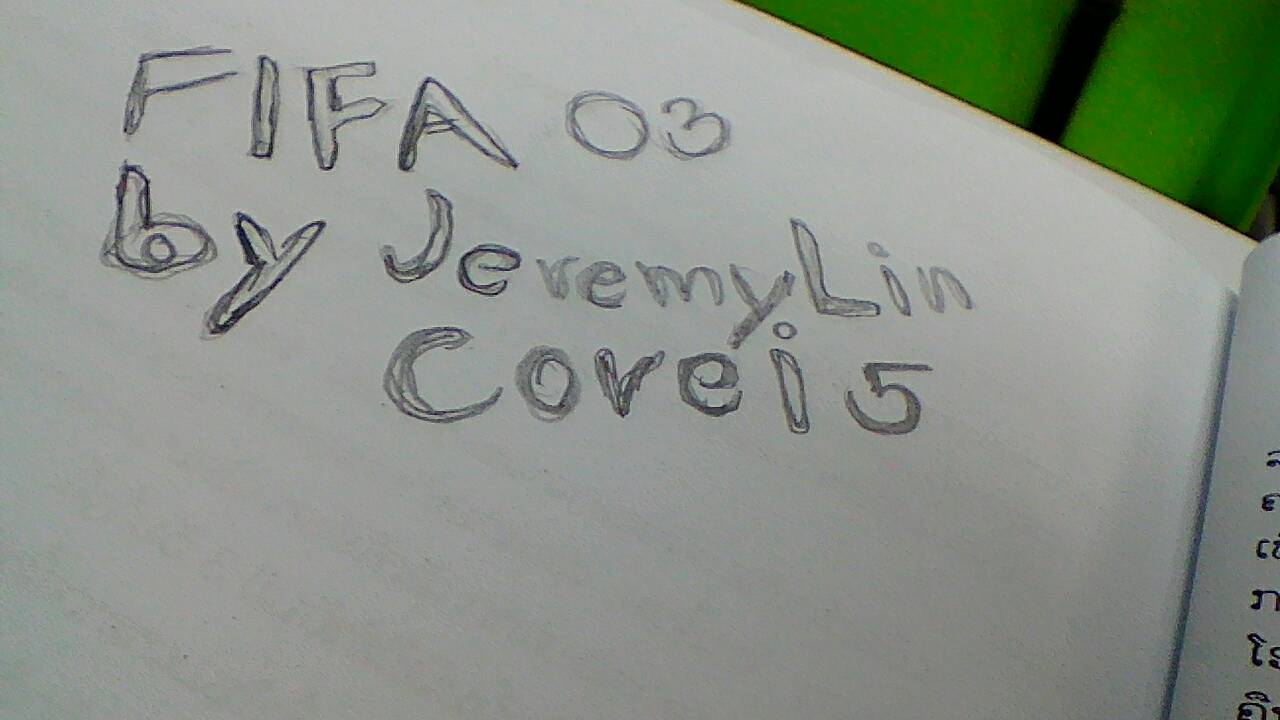 FIFA 03
by JeremyLin
Corei5